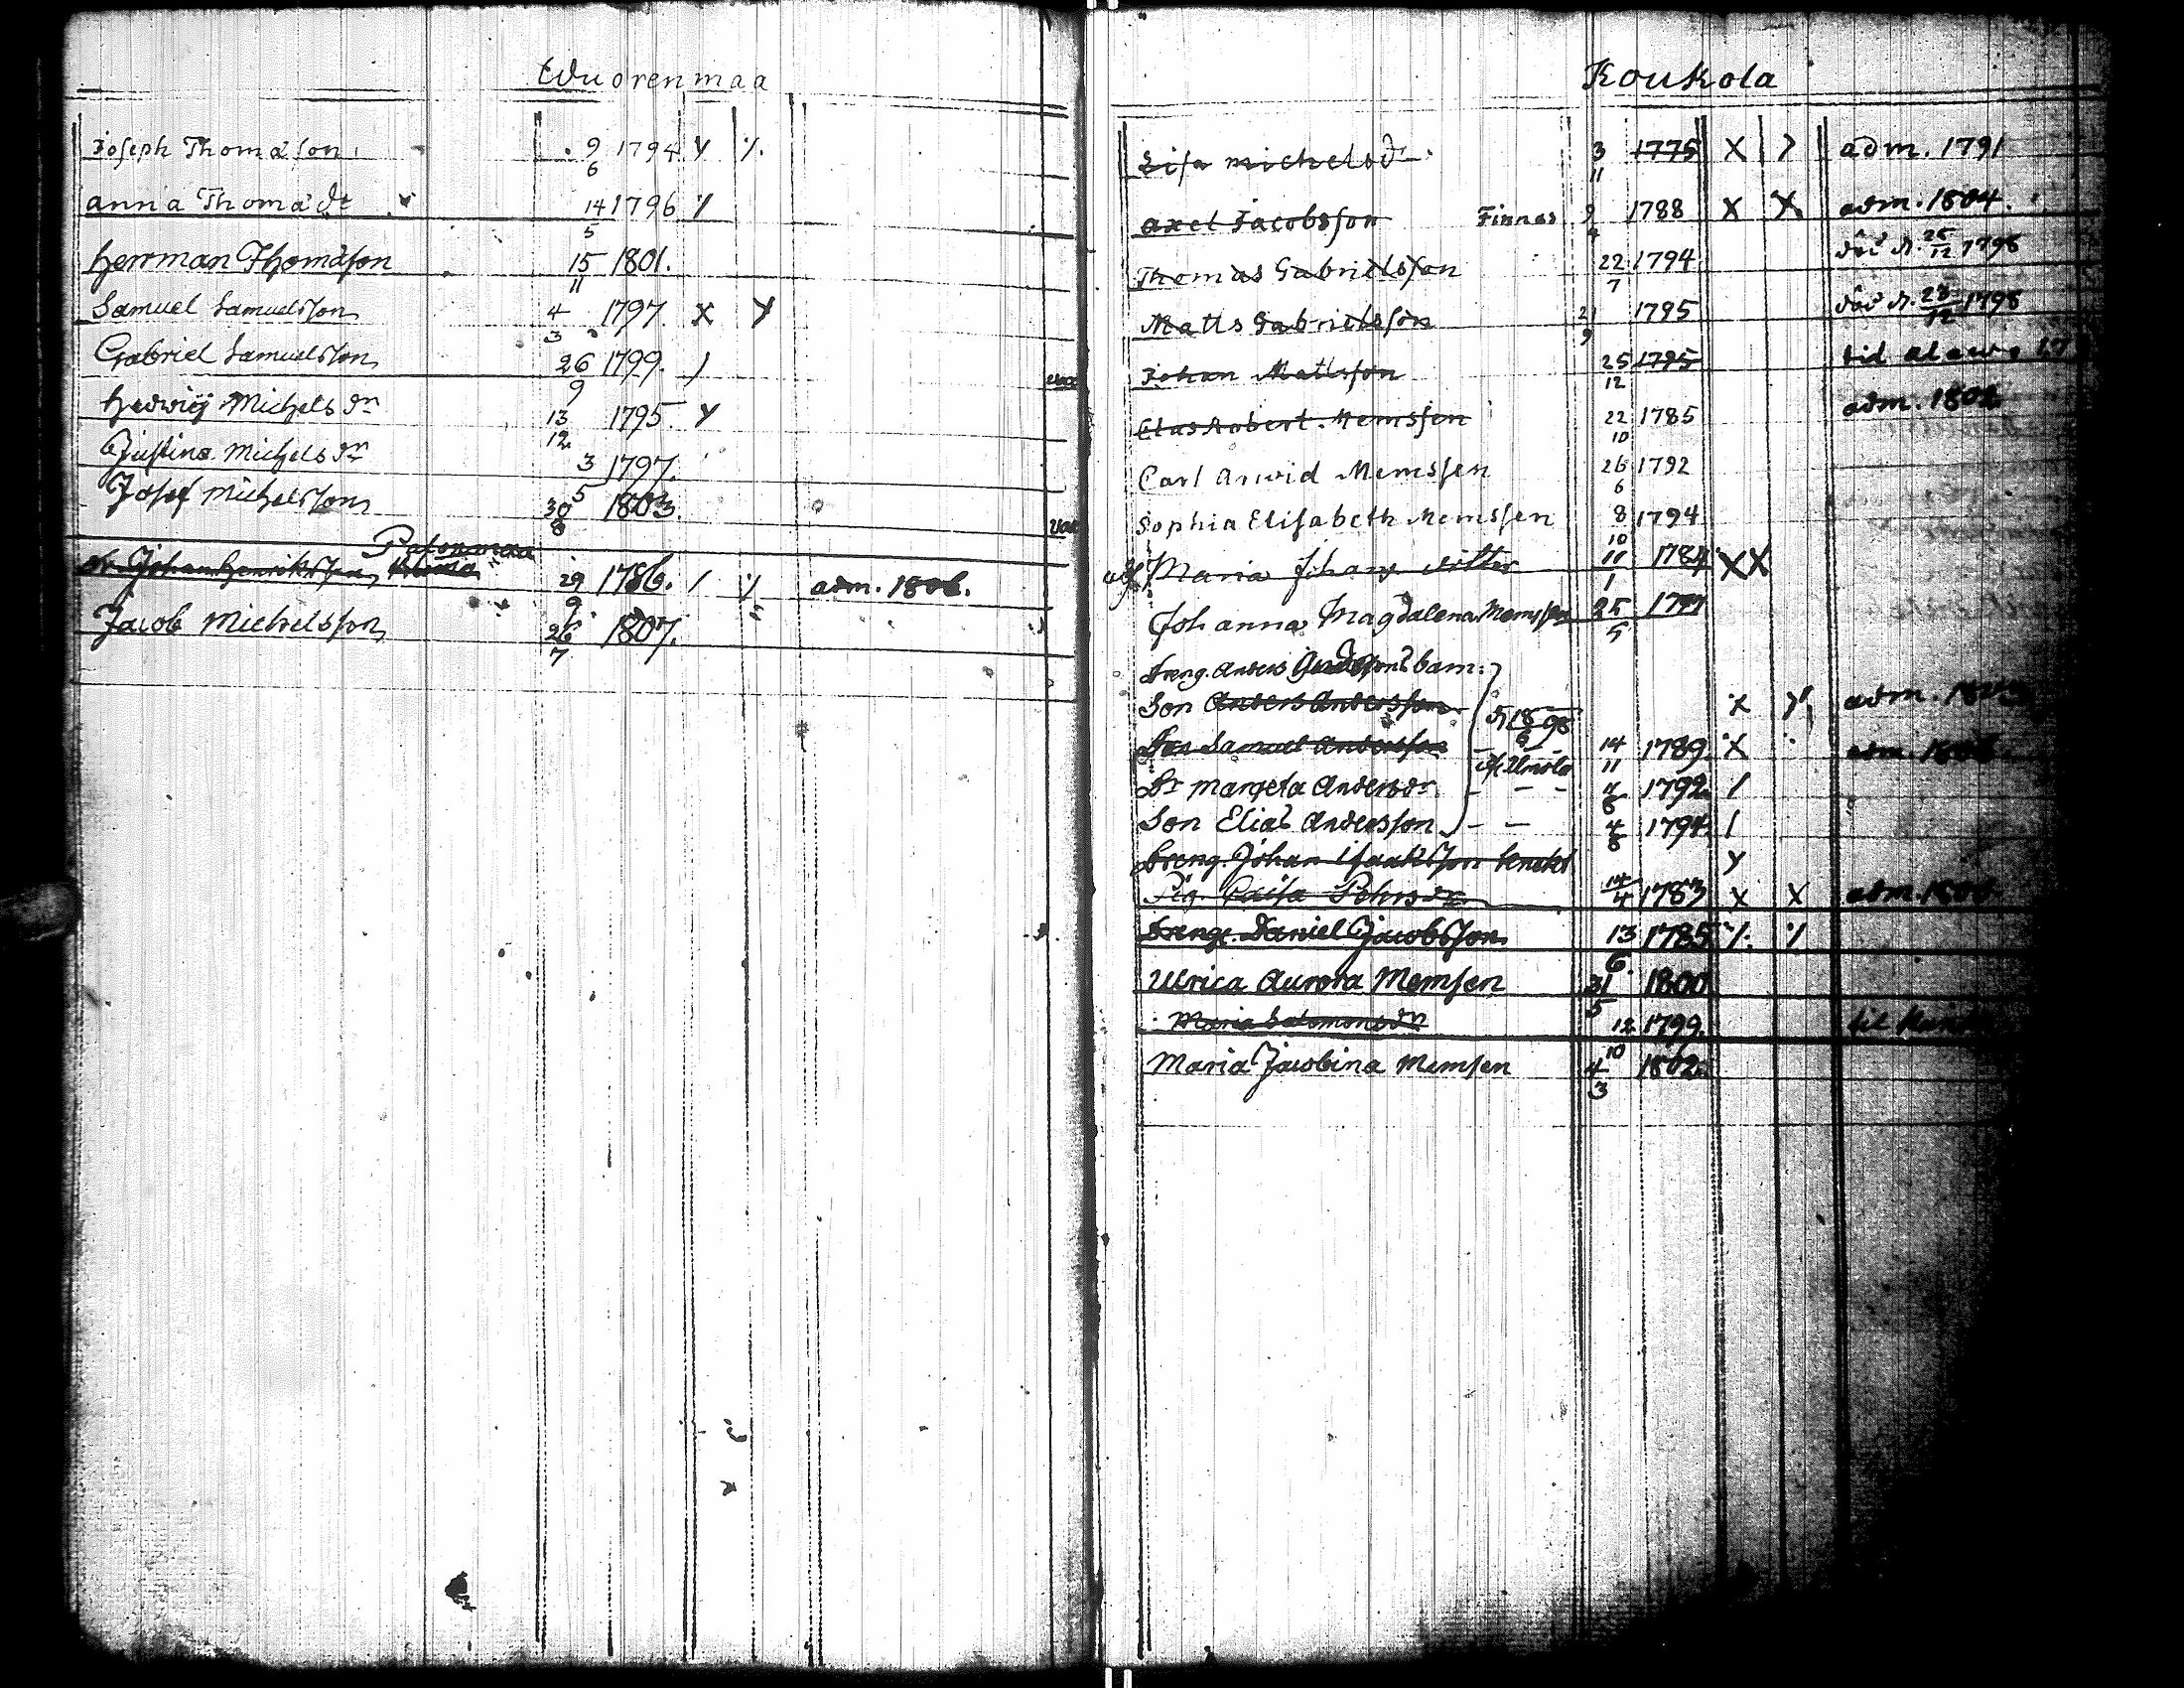 Wuorenmaa
Joseph Thomasson 9/6 1794 y ·/.
anna Thomadt 14/5 1796 ·/
Herrman Thomasson 15/11 1801.
Samuel Samuelsson 4/3 1797. x y
Gabriel Samuelsson 26/9 1799. /
Hedwig Michelsdr 13/12 1795 y
Justina Michelsdr 3/5 1797.
Josef Michelsson 30/8 1803.
Johan Henriksson 29/9 1786. / ·/. adm. 1806.
Jacob Michelsson 26/7 1807.
Koukola
Lisa michelsdr 3/11 1775 X adm. 1791
axel Jacobsson Finnas 9/4 1788 X X adm. 1804.
Thomas Gabrielsson 22/7 1794 död d. 26/12 1798
Matts Gabrielsson 21/9 1795 död d. 28/12 1798
Johan Mattsson 25/12 1795 tid.
Clas Robert Memssen 22/10 1785 adm. 1802
Carl Arwid Memssen 26/6 1792
Sophia Elisabeth Memssen 8/10 1794
Maria Johans dotter 11/1 1784 XX
Johanna Magdalena Memssen 25/5 1797
Dreng. Anders barn:
Son Anders Andersson x adm.
Son Samuel Andersson 14/11 1789. X adm.
Dr Margeta Andersdr - - - 1792 /
Son Elias Andersson - - 4/8 1794 /
Dreng. Johan Isaaksson y
Pig. Caisa Pehrsdr 14/4 1783 x x adm.
Dreng. Daniel Jacobsson 13/6 1785 ·/. ·/
Ulrica Aurora Memsen 21/5 1800
Maria Salomonsdr 12/10 1799. til
Maria Jacobina Memsen 4/3 1802.